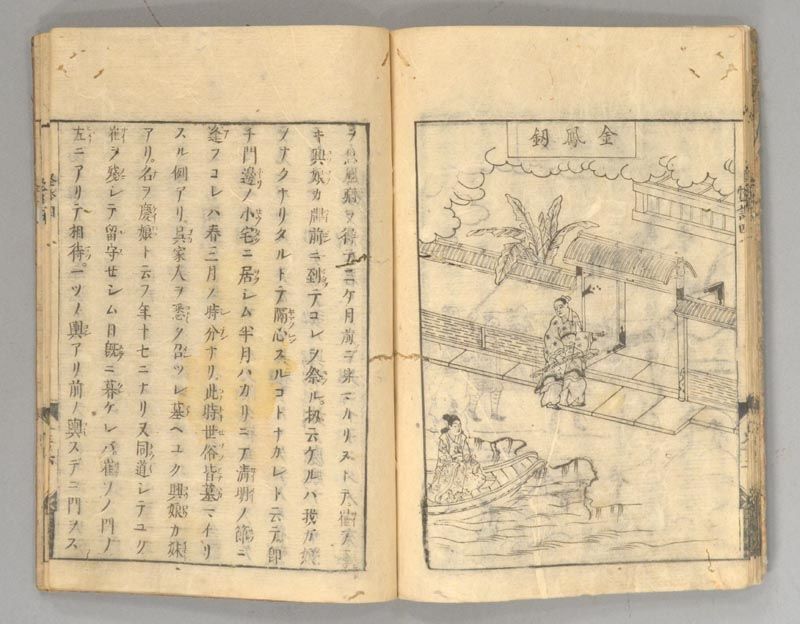 金鳳釵
ヲ得テ二ケ月前ニ
キ興娘カ前ニ到テコレヲ祭ル。扨云ケルハ我カ
ヲナクナリタルトテ隔心スルコトナカレト云テ即
チ門邊ノ小宅ニ居シム半月ハカリニテ清明ノ節ニ
逢フコレハ春三月ノ時分ナリ。此時世俗皆墓マイリ
スル例アリ。呉家人ヲ悉ク召ツレ墓ヘユク興娘カ妹
アリ。名ヲ慶娘ト云フ年十七ニナリ又同道シテユク
崔ヲ殘シテ留守セシム日既ニ暮ケレバ崔ソノ門ノ
左ニアリテ相待。一ツノ輿アリ前ノ輿スデニ門ヲス